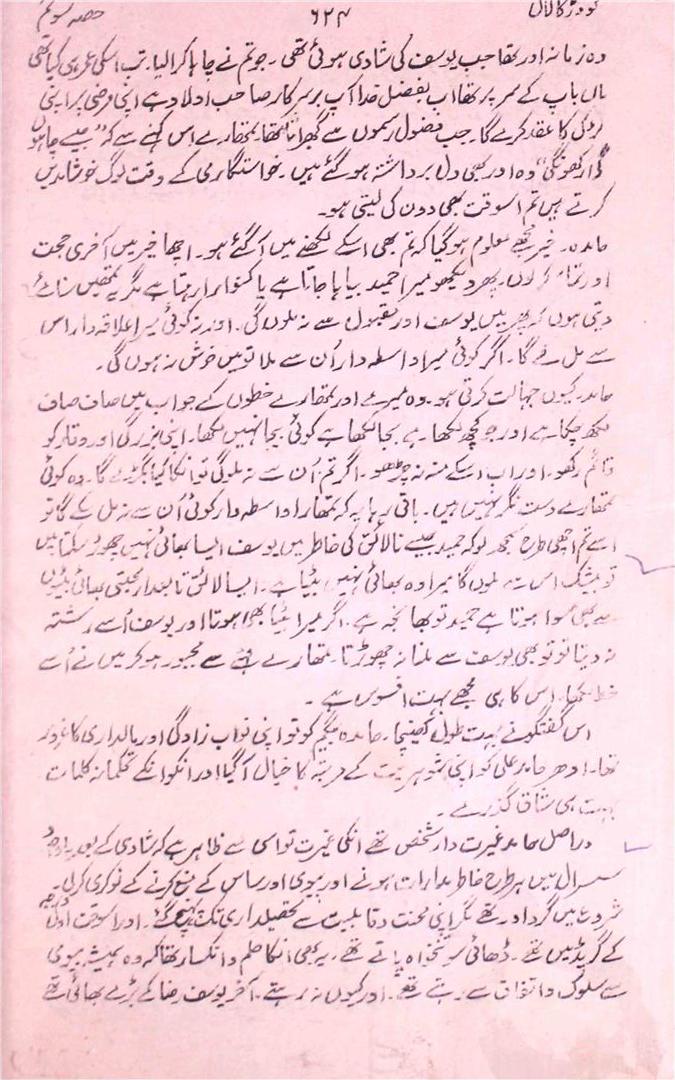 گودڑ کا لال ۶۲۴ حصہ سوئم
وہ زمانہ اور تھا جب یوسف کی شادی ہوئی تھی۔ جو تم نے چاہا کرا لیا۔ تب اسکی عمر ہی کیا تھی
ماں باپ کے سر پر تھا اب بفضل خدا آپ برسرکار صاحب اولاد ہے اپنی مرضی پر اپنی
لڑکی کا عقد کرے گا۔ جب فضول رسموں سے گھبراتا تھا۔ تمھارے اس کہنے سے کہ "جیسے چاہوں
گی رکھونگی" وہ اور بھی دل برداشتہ ہو گئے ہیں۔ خواستگاری کے وقت لوگ خوشامدیں
کرتے ہیں تم اسوقت بھی دون کی لیتی ہو۔
حامدہ۔ خیر مجھے معلوم ہو گیا کہ تم بھی اسکے لکھنے میں آ گئے ہو۔ اچھا خیر میں آخری حجت
اور تمام کر لوں۔ پھر دیکھو میرا حمید بیاہا جاتا ہے یا کنوارا رہتا ہے مگر یہ تمھیں سنائے
دیتی ہوں کہ پھر میں یوسف اور مقبول سے نہ ملوں گی۔ اور نہ کوئی میرا علاقہ دار اس
سے مل سکے گا۔ اگر کوئی میرا واسطہ دار اُن سے ملا تو میں خوش نہ ہوں گی۔
حامد۔ کیوں جہالت کرتی ہو۔ وہ میرے اور تمھارے خطوں کے جواب میں صاف صاف
لکھ چکا ہے اور جو کچھ لکھا ہے بجا لکھا ہے کوئی بیجا نہیں لکھا۔ اپنی بزرگی اور وقار کو
قائم رکھو۔ اور اب اسکے منہ نہ چڑھو۔ اگر تم اُن سے نہ ملو گی تو انکا کیا بگڑے گا۔ وہ کوئی
تمھارے دست نگر نہیں ہیں۔ باقی رہا یہ کہ تمھارا واسطہ دار کوئی اُن سے نہ مل سکے گا تو
اسے تم اچھی طرح سمجھ لو کہ حمید جیسے نالائق کی خاطر میں یوسف ایسا بھائی نہیں چھوڑ سکتا میں
تو بیشک اس سے ملوں گا میرا وہ بھائی نہیں بیٹا ہے۔ ایسا لائق تابعدار محبتی بھائی بیٹوں
سے بھی سوا ہوتا ہے حمید تو بھانجہ ہے۔ اگر میرا بیٹا بھی ہوتا اور یوسف اُسے رشتہ
نہ دیتا تو تو بھی یوسف سے ملنا نہ چھوڑتا۔ تمھارے کہنے سے مجبور ہو کر میں نے اُسے
خط لکھا۔ اس کا ہی مجھے بہت افسوس ہے۔
اس گفتگو نے بہت طول کھینچا۔ حامدہ بیگم کو تو اپنی نواب زادگی اور مالداری کا غرور
تھا۔ ادھر حامد علی کو اپنی شوہریت کے مرتبہ کا خیال آ گیا اور انکو انکے تحکمانہ کلمات
بہت ہی شاق گذرے۔
دراصل حامد غیرت دار شخص تھے انکی غیرت تو اسی سے ظاہر ہے کہ شادی کے بعد باوجود
سسرال میں ہر طرح خاطر مدارات ہونے اور بیوی اور ساس کے منع کرنے کے نوکری کر لی۔
شروع میں گرداور تھے مگر اپنی محنت و قابلیت سے تحصیلداری تک پہنچ گئے۔ اور اسوقت اول درجہ
کے گریڈ میں تھے۔ ڈھائی سو تنخواہ پاتے تھے۔ یہ بھی انکا حلم و انکسار تھا کہ وہ ہمیشہ بیوی
سے سلوک و اتفاق سے رہتے تھے۔ اور کیوں نہ رہتے۔ آخر یوسف رضا کے بڑے بھائی تھے